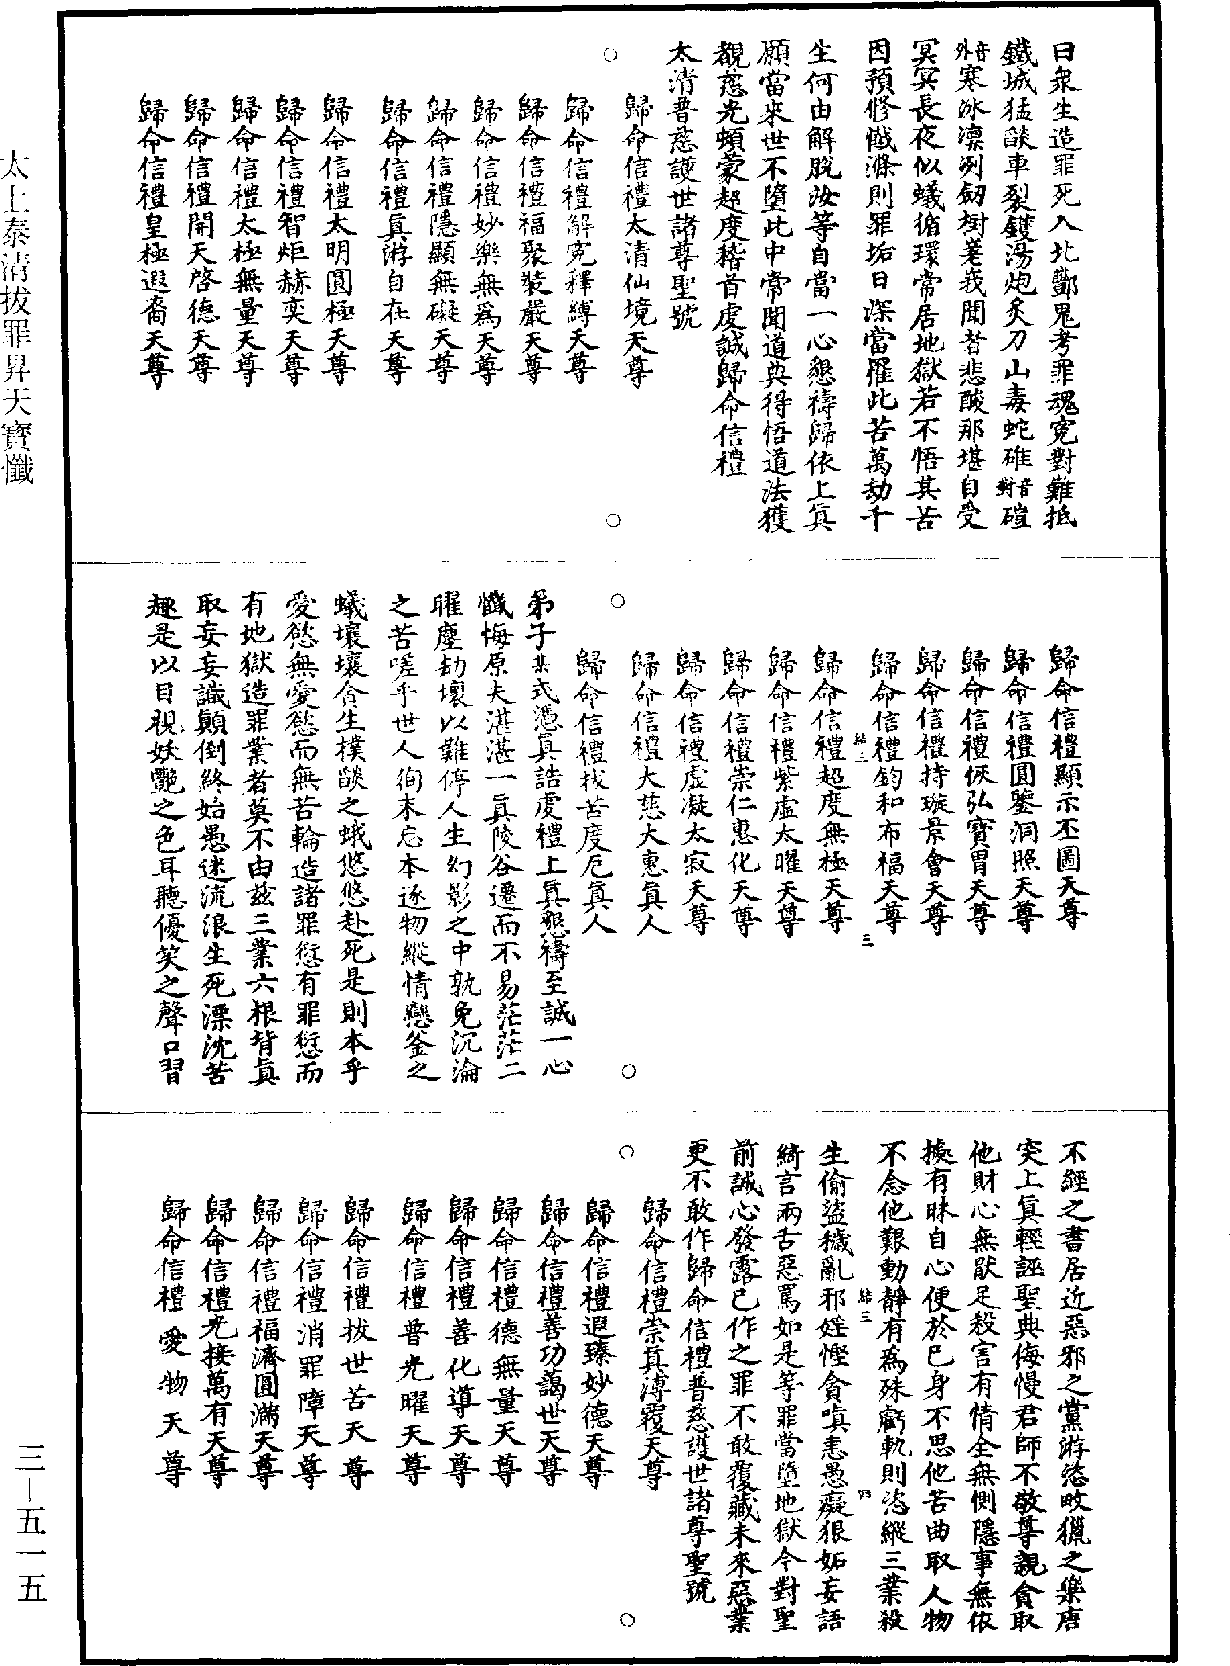 曰衆生造罪死入北酆鬼考罪魂寃對難抵
鐵城猛燄車裂鑊湯炮炙刀山毒蛇碓音對磑
音外寒冰凜冽劒樹嵳峩聞者悲酸那堪自受
冥冥長夜似蟻循環常居地獄若不悟其苦
因預修懺滌則罪垢日深當罹此苦萬劫千
生何由解脫汝等自當一心懇禱歸依上眞
願當來世不墮此中常聞道典得悟道法獲
覩慈光頓蒙超度稽首虔誠歸命信禮
太清普慈護世諸尊聖號
歸命信禮太清仙境天尊
歸命信禮解寃釋縛天尊
歸命信禮福聚裝嚴天尊
歸命信禮妙樂無爲天尊
歸命信禮隱顯無礙天尊
歸命信禮眞游自在天尊
歸命信禮太明圓極天尊
歸命信禮智炬赫奕天尊
歸命信禮太極無量天尊
歸命信禮開天啓德天尊
歸命信禮皇極遐裔天尊
歸命信禮顯示丕圖天尊
歸命信禮圓鑒洞照天尊
歸命信禮恢弘寶胃天尊
歸命信禮持璇景會天尊
歸命信禮鈞和布福天尊
三
歸命信禮超度無極天尊
歸命信禮紫虛太曜天尊
歸命信禮崇仁惠化天尊
歸命信禮虛凝太寂天尊
歸命信禮大慈大惠眞人
歸命信禮救苦度厄眞人
弟子某式憑眞誥虔禮上眞懇禱至誠一心
懺悔原夫湛湛一眞陵谷遷而不易茫茫二
曜塵劫壞以難停人生幻影之中孰免沉淪
之苦嗟乎世人徇末忘本逐物縱情戀釜之
蟻壤壤貪生撲燄之蛾悠悠赴死是則本乎
愛慾無愛慾而無苦輪造諸罪愆有罪愆而
有地獄造罪業者莫不由兹三業六根背眞
取妄妄識顚倒終始愚迷流浪生死漂沈苦
趣是以目視妖豔之色耳聽優笑之聲口習
不經之書居近惡邪之黨游恣畋獵之樂唐
突上眞輕誣聖典侮慢君師不敬尊親貪取
他財心無猒足殺害有情全無惻隱事無依
據有昧自心便於己身不思他苦曲取人物
不念他艱動靜有爲殊虧軌則恣縱三業殺
四
生偷盜穢亂邪婬慳貪嗔恚愚癡狠妬妄語
綺言兩舌惡罵如是等罪當墮地獄今對聖
前誠心發露已作之罪不敢覆藏未來惡業
更不敢作歸命信禮普慈護世諸尊聖號
歸命信禮崇眞溥覆天尊
歸命信禮遐臻妙德天尊
歸命信禮善功藹世天尊
歸命信禮德無量天尊
歸命信禮善化導天尊
歸命信禮普光曜天尊
歸命信禮拔世苦天尊
歸命信禮消罪障天尊
歸命信禮福濟圓滿天尊
歸命信禮光接萬有天尊
歸命信禮愛物天尊
太上泰清拔罪昇天寶懺
三—五一五